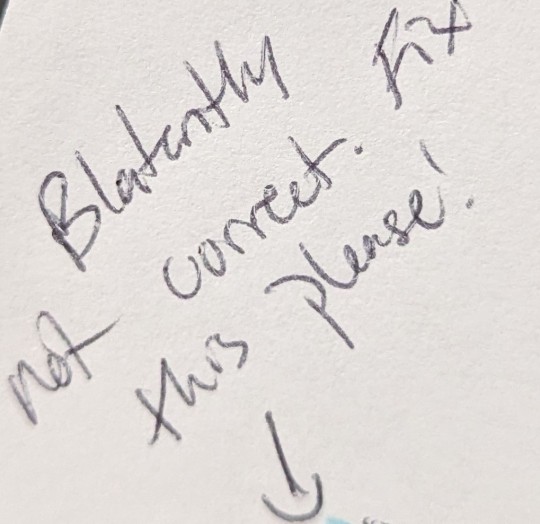 Blatantly
not correct. Fix
this please!